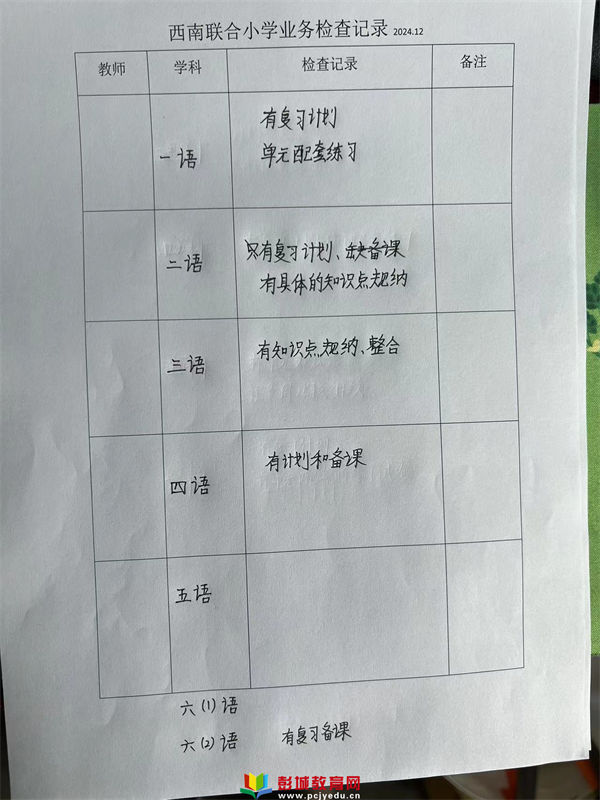 西南联合小学业务检查记录 2024.12
教师 学科 检查记录 备注
一语 有复习计划
单元配套练习
二语 只有复习计划、缺备课
有具体的知识点规纳
三语 有知识点规纳、整合
四语 有计划和备课
五语
六(1)语
六(2)语 有复习备课
彭城教育网
www.pcjyedu.cn